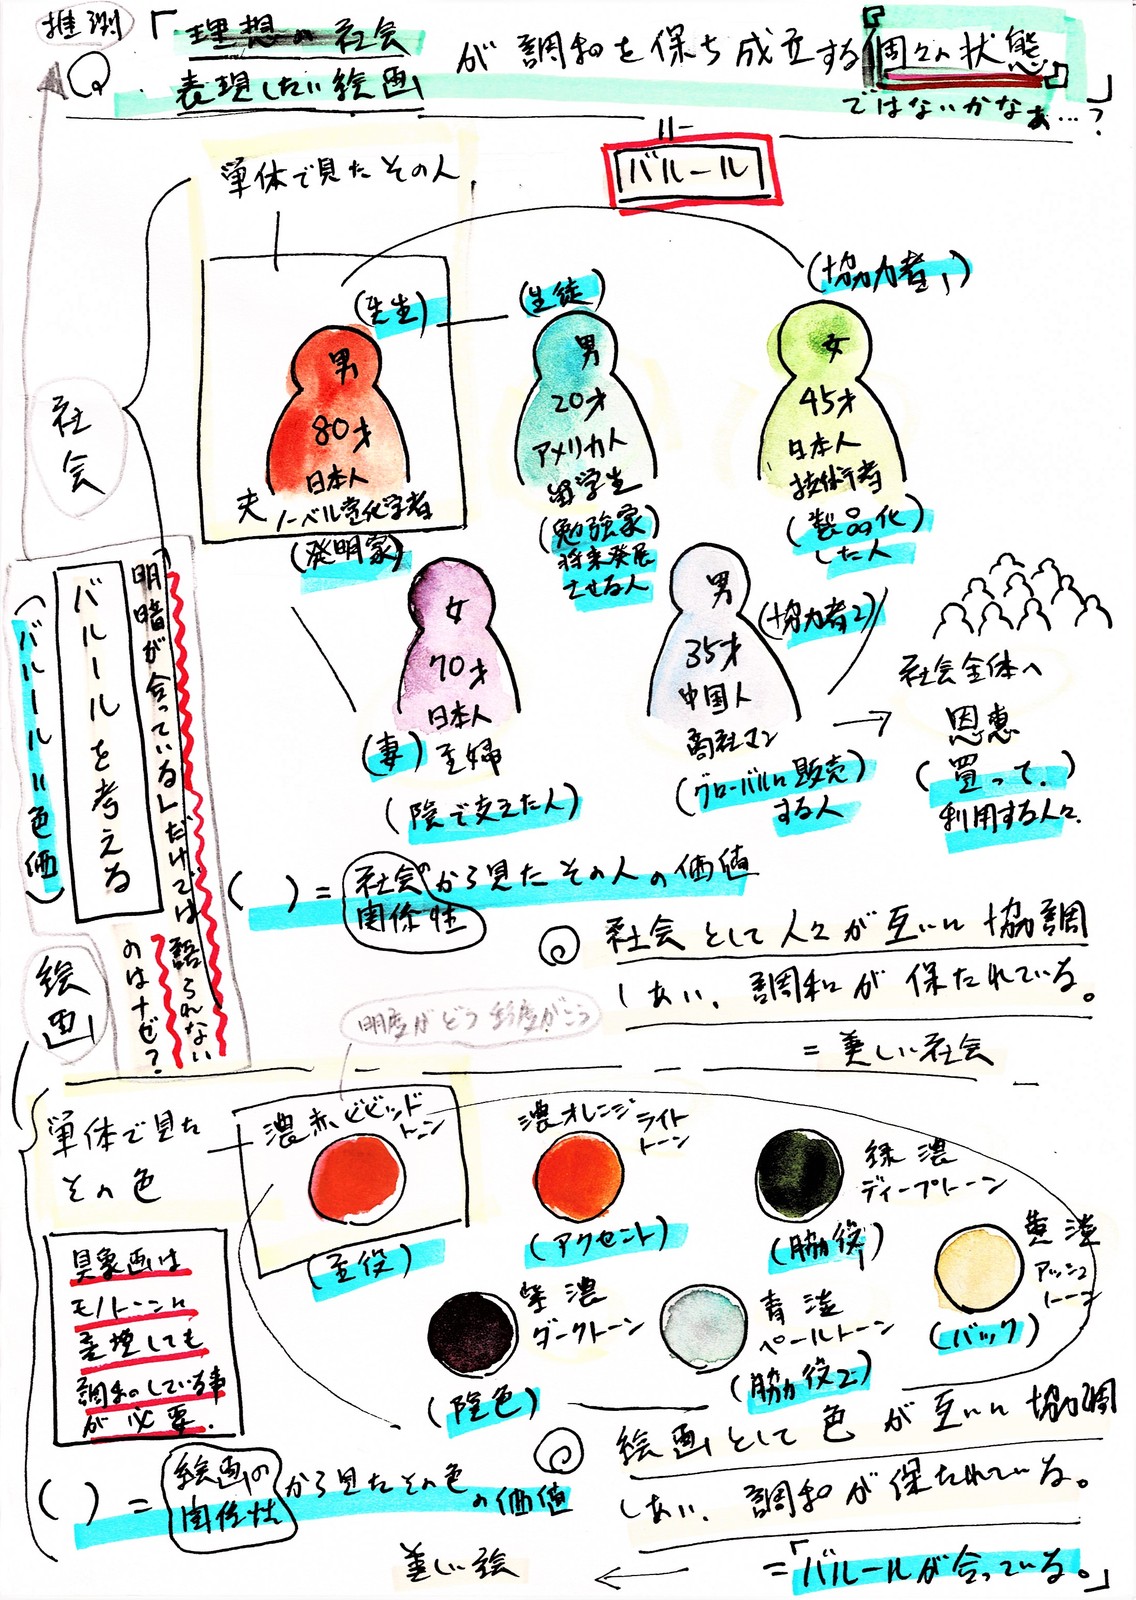 推測
Q.「理想の社会
表現したい絵画
が調和を保ち成立する個々の状態」
ではないかなぁ…?
=
バルール
単体で見たその人
社会
(先生)
男
80才
日本人
夫 ノーベル賞化学者
(発明家)
(生徒)
男
20才
アメリカ人
留学生
(勉強家
将来発展
させる人)
(協力者1)
女
45才
日本人
技術者
(製品化
した人)
女
70才
日本人
(妻) 主婦
(陰で支えた人)
男
(協力者2)
35才
中国人
商社マン
(グローバルに販売
する人)
社会全体へ
恩恵
(買って.
利用する人々)
「明暗が合っている」だけでは語られない
のはナゼ?
バルールを考える
(バルール=色価)
( ) = 社会の関係性から見たその人の価値
◎ 社会として人々が互いに協調
しあい、調和が保たれている。
= 美しい社会
絵画
明度がどう彩度がこう
単体で見た
その色
濃赤ビビッド
トーン
(主役)
濃オレンジ ライト
トーン
(アクセント)
緑 濃
ディープトーン
(脇役)
紫 濃
ダークトーン
(陰色)
青 淡
ペールトーン
(脇役2)
黄 淡
アッシュ
トーン
(バック)
具象画は
モノトーンに
変換しても
調和している事
が必要.
( ) = 絵画の関係性から見たその色の価値
◎ 絵画として色が互いに協調
しあい、調和が保たれている。
=「バルールが合っている。」
美しい絵 ←